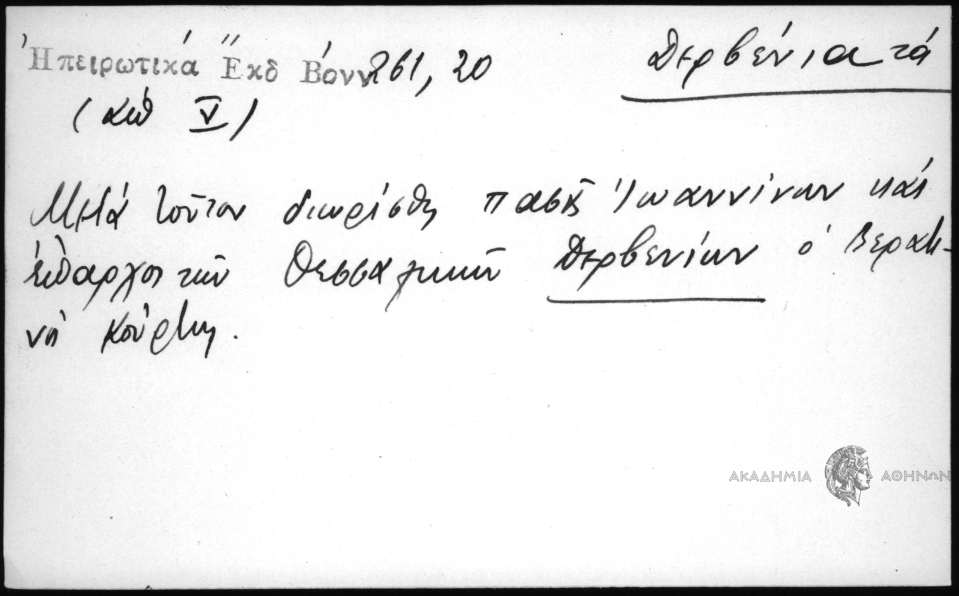 Ἠπειρωτικά Ἔκδ Βόνν 261, 20
Δερβένια τά
(κεφ V)
Μετά τοῦτον διωρίσθη πασᾶς Ἰωαννίνων καί
ἔπαρχος τῶν Θεσσαλικῶν Δερβενίων ὁ Βερατι-
νός Κούρτης.
ΑΚΑΔΗΜΙΑ ΑΘΗΝΩΝ